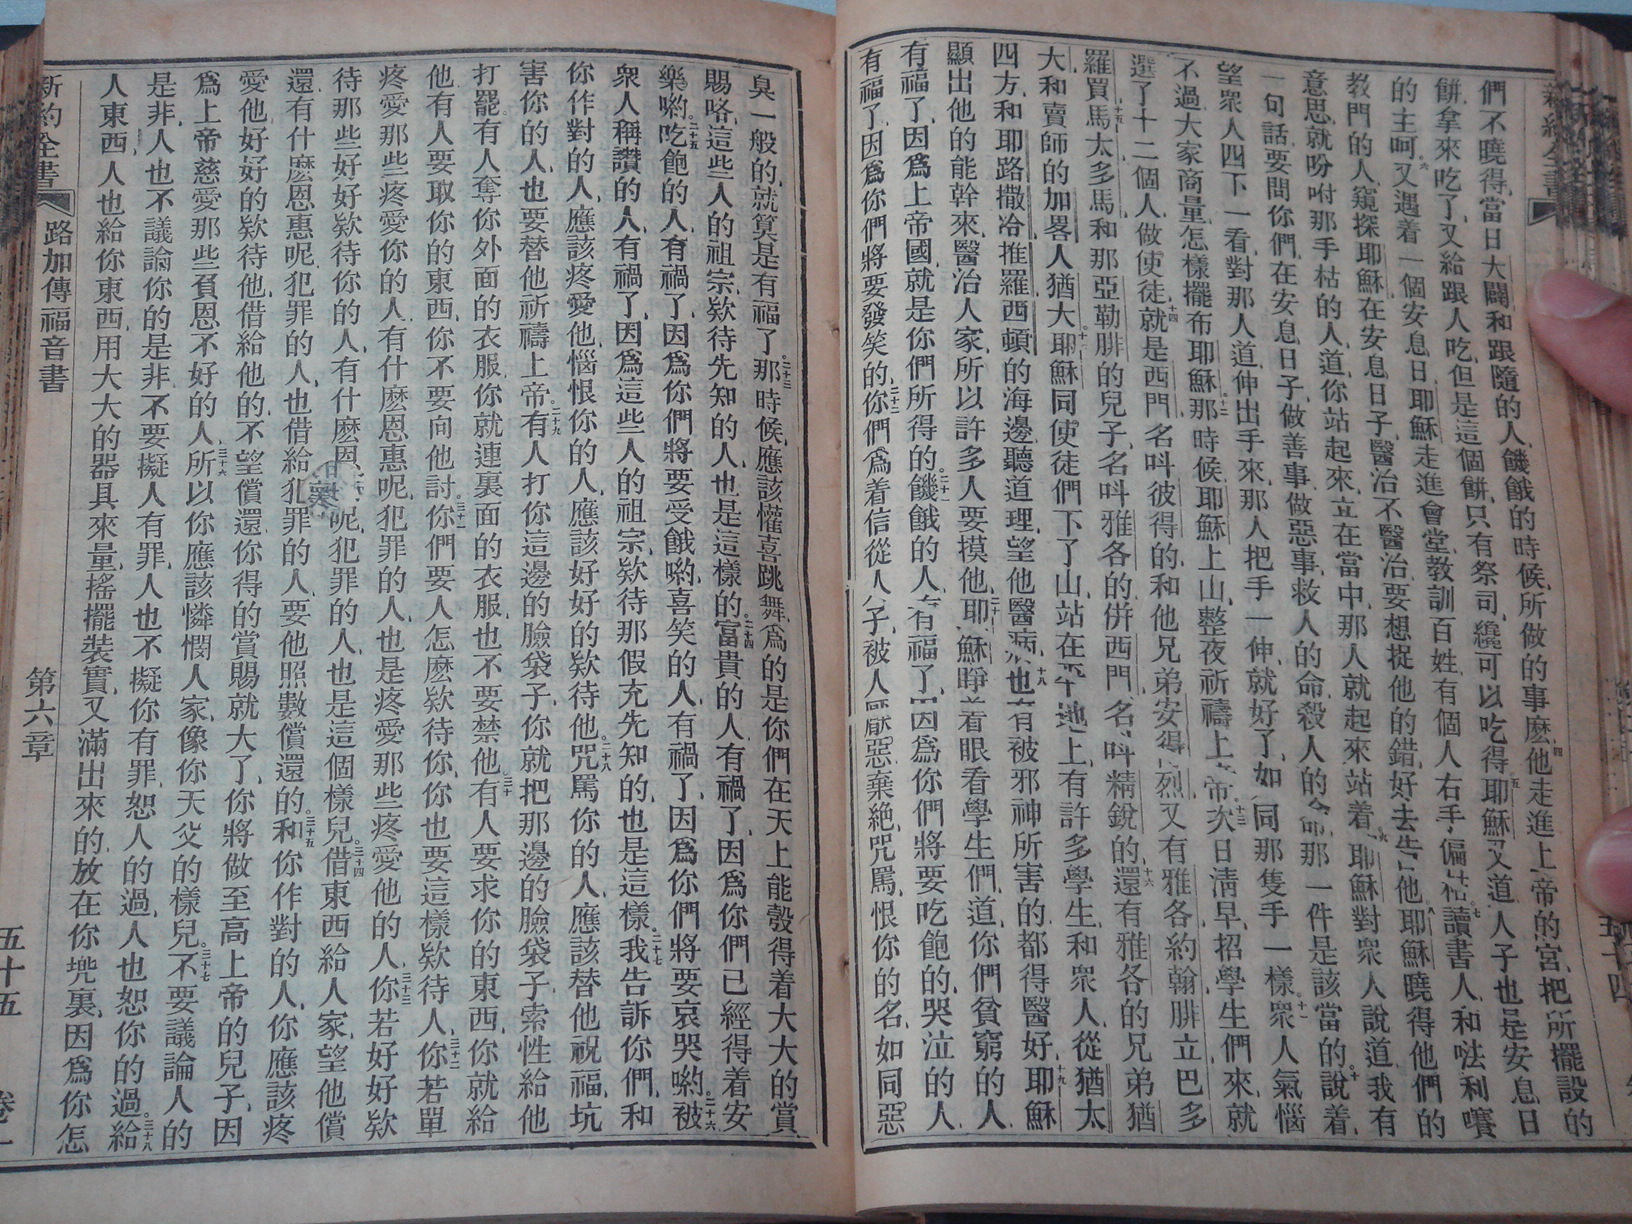 新約全書
們不曉得、當日大闢和跟隨的人、饑餓的時候、所做的事麼、他走進上帝的宮、把所擺設的
餅、拿來吃了、又給跟人吃、但是這個餅、只有祭司、纔可以吃得、耶穌又道、人子也是安息日
的主呵、又遇着一個安息日、耶穌走進會堂教訓百姓、有個人右手偏枯、讀書人和𠵽利嚽
教門的人、窺探耶穌在安息日子、醫治不醫治、要想捉他的錯、好去告他、耶穌曉得他們的
意思、就吩咐那手枯的人道、你站起來、立在當中、那人就起來站着、耶穌對衆人說道、我有
一句話、要問你們、在安息日子、做善事、做惡事、救人的命、殺人的命、那一件是該當的、說着、
望衆人四下一看、對那人道、伸出手來、那人把手一伸、就好了、如同那隻手一樣、衆人氣惱
不過、大家商量、怎樣擺布耶穌、那時候耶穌上山、整夜祈禱上帝、次日清早、招學生們來、就
選了十二個人、做使徒、就是西門、名叫彼得的、和他兄弟安得烈、又有雅各、約翰、腓立、巴多
羅買、馬太、多馬、和那亞勒腓的兒子、名叫雅各的、併西門、名叫精銳的、還有雅各的兄弟猶
大、和賣師的加畧人猶大、耶穌同使徒們下了山、站在平地上、有許多學生、和衆人、從猶太
四方、和耶路撒冷、推羅西頓的海邊、聽道理、望他醫病、也有被邪神所害的、都得醫好、耶穌
顯出他的能幹來、醫治人家、所以許多人要摸他、耶穌睜着眼看學生們道、你們貧窮的人
有福了、因爲上帝國就是你們所得的、饑餓的人有福了、因爲你們將要吃飽的、哭泣的人
有福了、因爲你們將要發笑的、你們爲着信從人子、被人厭惡棄絕、咒罵、恨你的名、如同惡
臭一般的、就算是有福了、那時候、應該懽喜跳舞、爲的是你們在天上、能彀得着大大的賞
賜咯、這些人的祖宗、欵待先知的人、也是這樣的、富貴的人有禍了、因爲你們已經得着安
樂喲、吃飽的人有禍了、因爲你們將要受餓喲、喜笑的人有禍了、因爲你們將要哀哭喲、被
衆人稱讚的人有禍了、因爲這些人的祖宗、欵待那假充先知的、也是這樣、我告訴你們、和
你作對的人、應該疼愛他、惱恨你的人、應該好好的欵待他、咒罵你的人、應該替他祝福、坑
害你的人、也要替他祈禱上帝、有人打你這邊的臉袋子、你就把那邊的臉袋子、索性給他
打罷、有人奪你外面的衣服、你就連裏面的衣服、也不要禁他、有人要求你的東西、你就給
他、有人要取你的東西、你不要向他討、你們要人怎麼欵待你、你也要這樣欵待人、你若單
疼愛那些疼愛你的人、有什麼恩惠呢、犯罪的人、也是疼愛那些疼愛他的人、你若好好欵
待那些好好欵待你的人、有什麽恩惠呢、犯罪的人、也是這個樣兒、借東西給人家、望他償
還、有什麽恩惠呢、犯罪的人、也借給犯罪的人、要他照數償還的、和你作對的人、你應該疼
愛他、好好的欵待他、借給他的、不望償還、你得的賞賜就大了、你將做至高上帝的兒子、因
爲上帝慈愛那些負恩不好的人、所以你應該憐憫人家、像你天父的樣兒、不要議論人的
是非、人也不議論你的是非、不要擬人有罪、人也不擬你有罪、恕人的過、人也恕你的過、給
人東西、人也給你東西、用大大的器具來量、搖擺裝實、又滿出來的、放在你兜裏、因爲你怎
新約全書 路加傳福音書 第六章 五十五